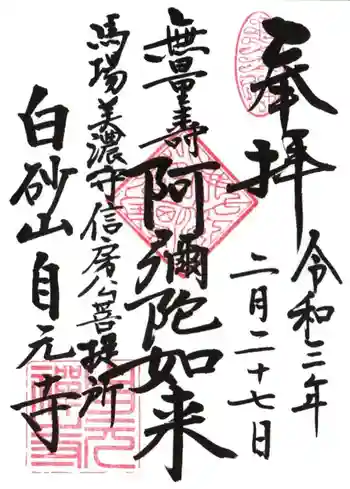 奉拝
令和三年
二月二十七日
無量壽
阿彌陀如来
馬場美濃守信房公菩提所
白砂山自元寺